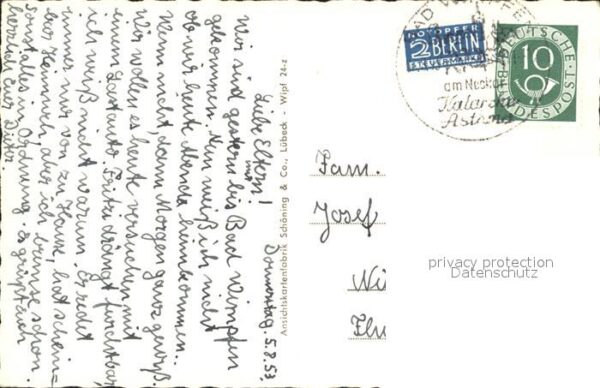 Donnerstag, 5.8.53.
Liebe Eltern!
Wir sind gestern bis Bad Wimpfen
gekommen. Nun weiß ich nicht
ob wir heute Abend heimkommen.
Wenn nicht, dann Morgen ganz gewiß.
Wir wollen es heute versuchen mit
einem Lastauto. Fritz drängt furchtbar
ich weiß nicht warum. Er redet
immer nur von zu Hause, hat schein-
bar Heimweh, aber ich bremse schon
Ordnung es grüßt euch
herzlich
Ansichtskartenfabrik Schöning & Co., Lübeck - Wipf 24-z
NOTOPFER
2 BERLIN
STEUERMARKE
BAD
am Neckar
DEUTSCHE
BUNDESPOST
10
Fam.
Josef
privacy protection
Datenschutz